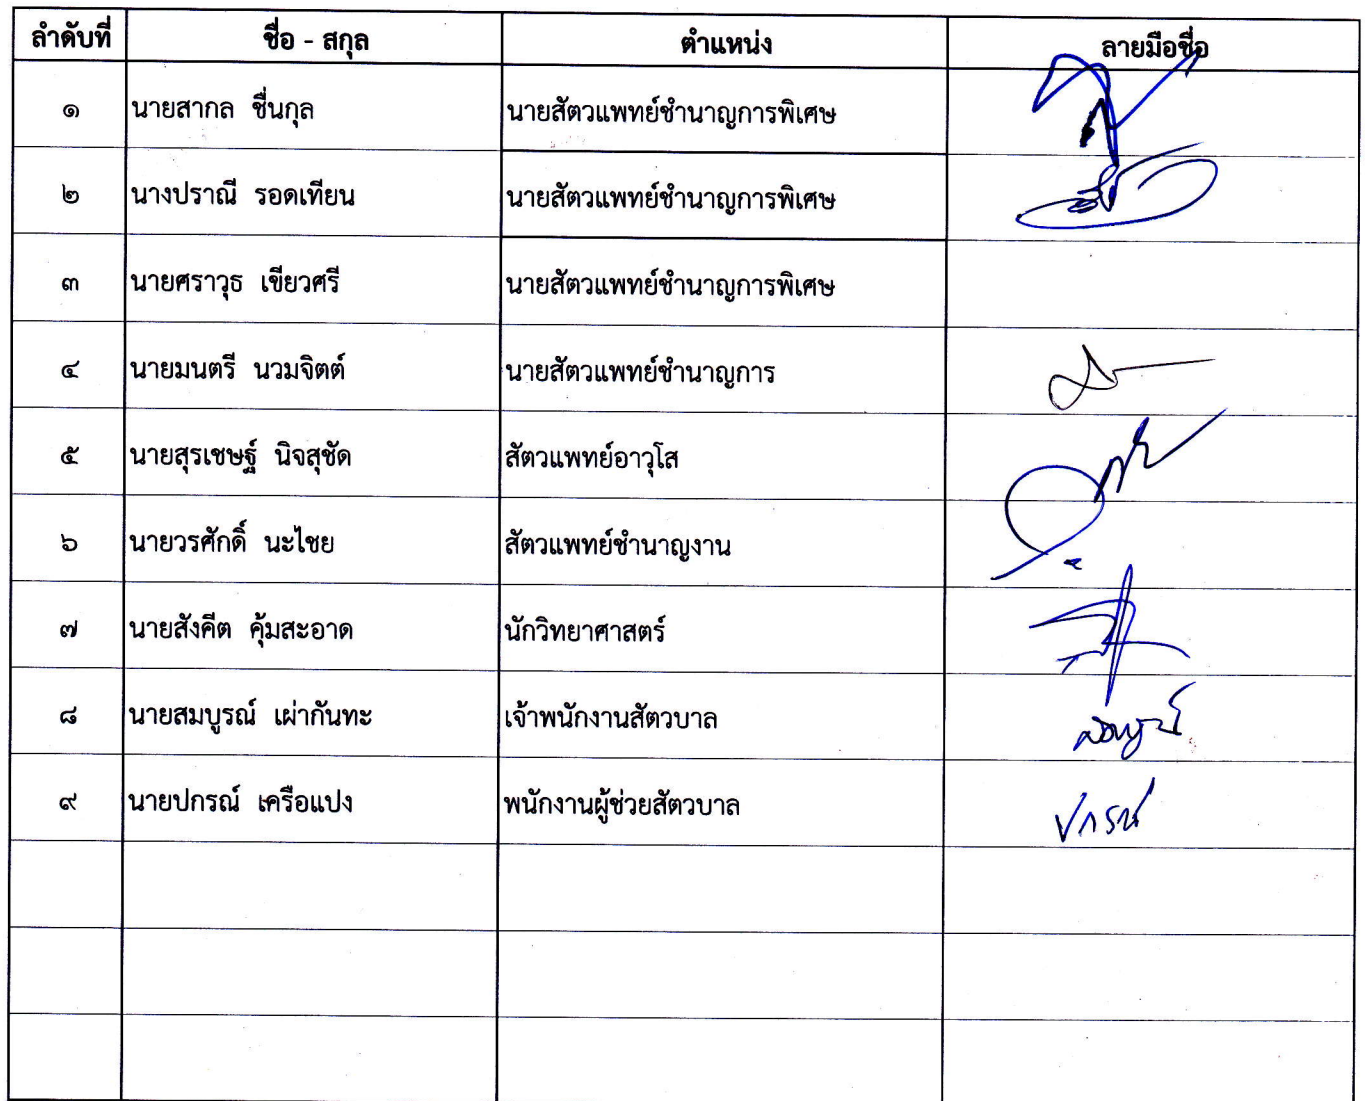 ลำดับที่ ชื่อ - สกุล ตำแหน่ง ลายมือชื่อ
๑ นายสากล ชื่นกุล นายสัตวแพทย์ชำนาญการพิเศษ
๒ นางปราณี รอดเทียน นายสัตวแพทย์ชำนาญการพิเศษ
๓ นายศราวุธ เขียวศรี นายสัตวแพทย์ชำนาญการพิเศษ
๔ นายมนตรี นวมจิตต์ นายสัตวแพทย์ชำนาญการ
๕ นายสุรเชษฐ์ นิจสุชัด สัตวแพทย์อาวุโส
๖ นายวรศักดิ์ นะไชย สัตวแพทย์ชำนาญงาน
๗ นายสังคีต คุ้มสะอาด นักวิทยาศาสตร์
๘ นายสมบูรณ์ เผ่ากันทะ เจ้าพนักงานสัตวบาล สมบูรณ์
๙ นายปกรณ์ เครือแปง พนักงานผู้ช่วยสัตวบาล ปกรณ์